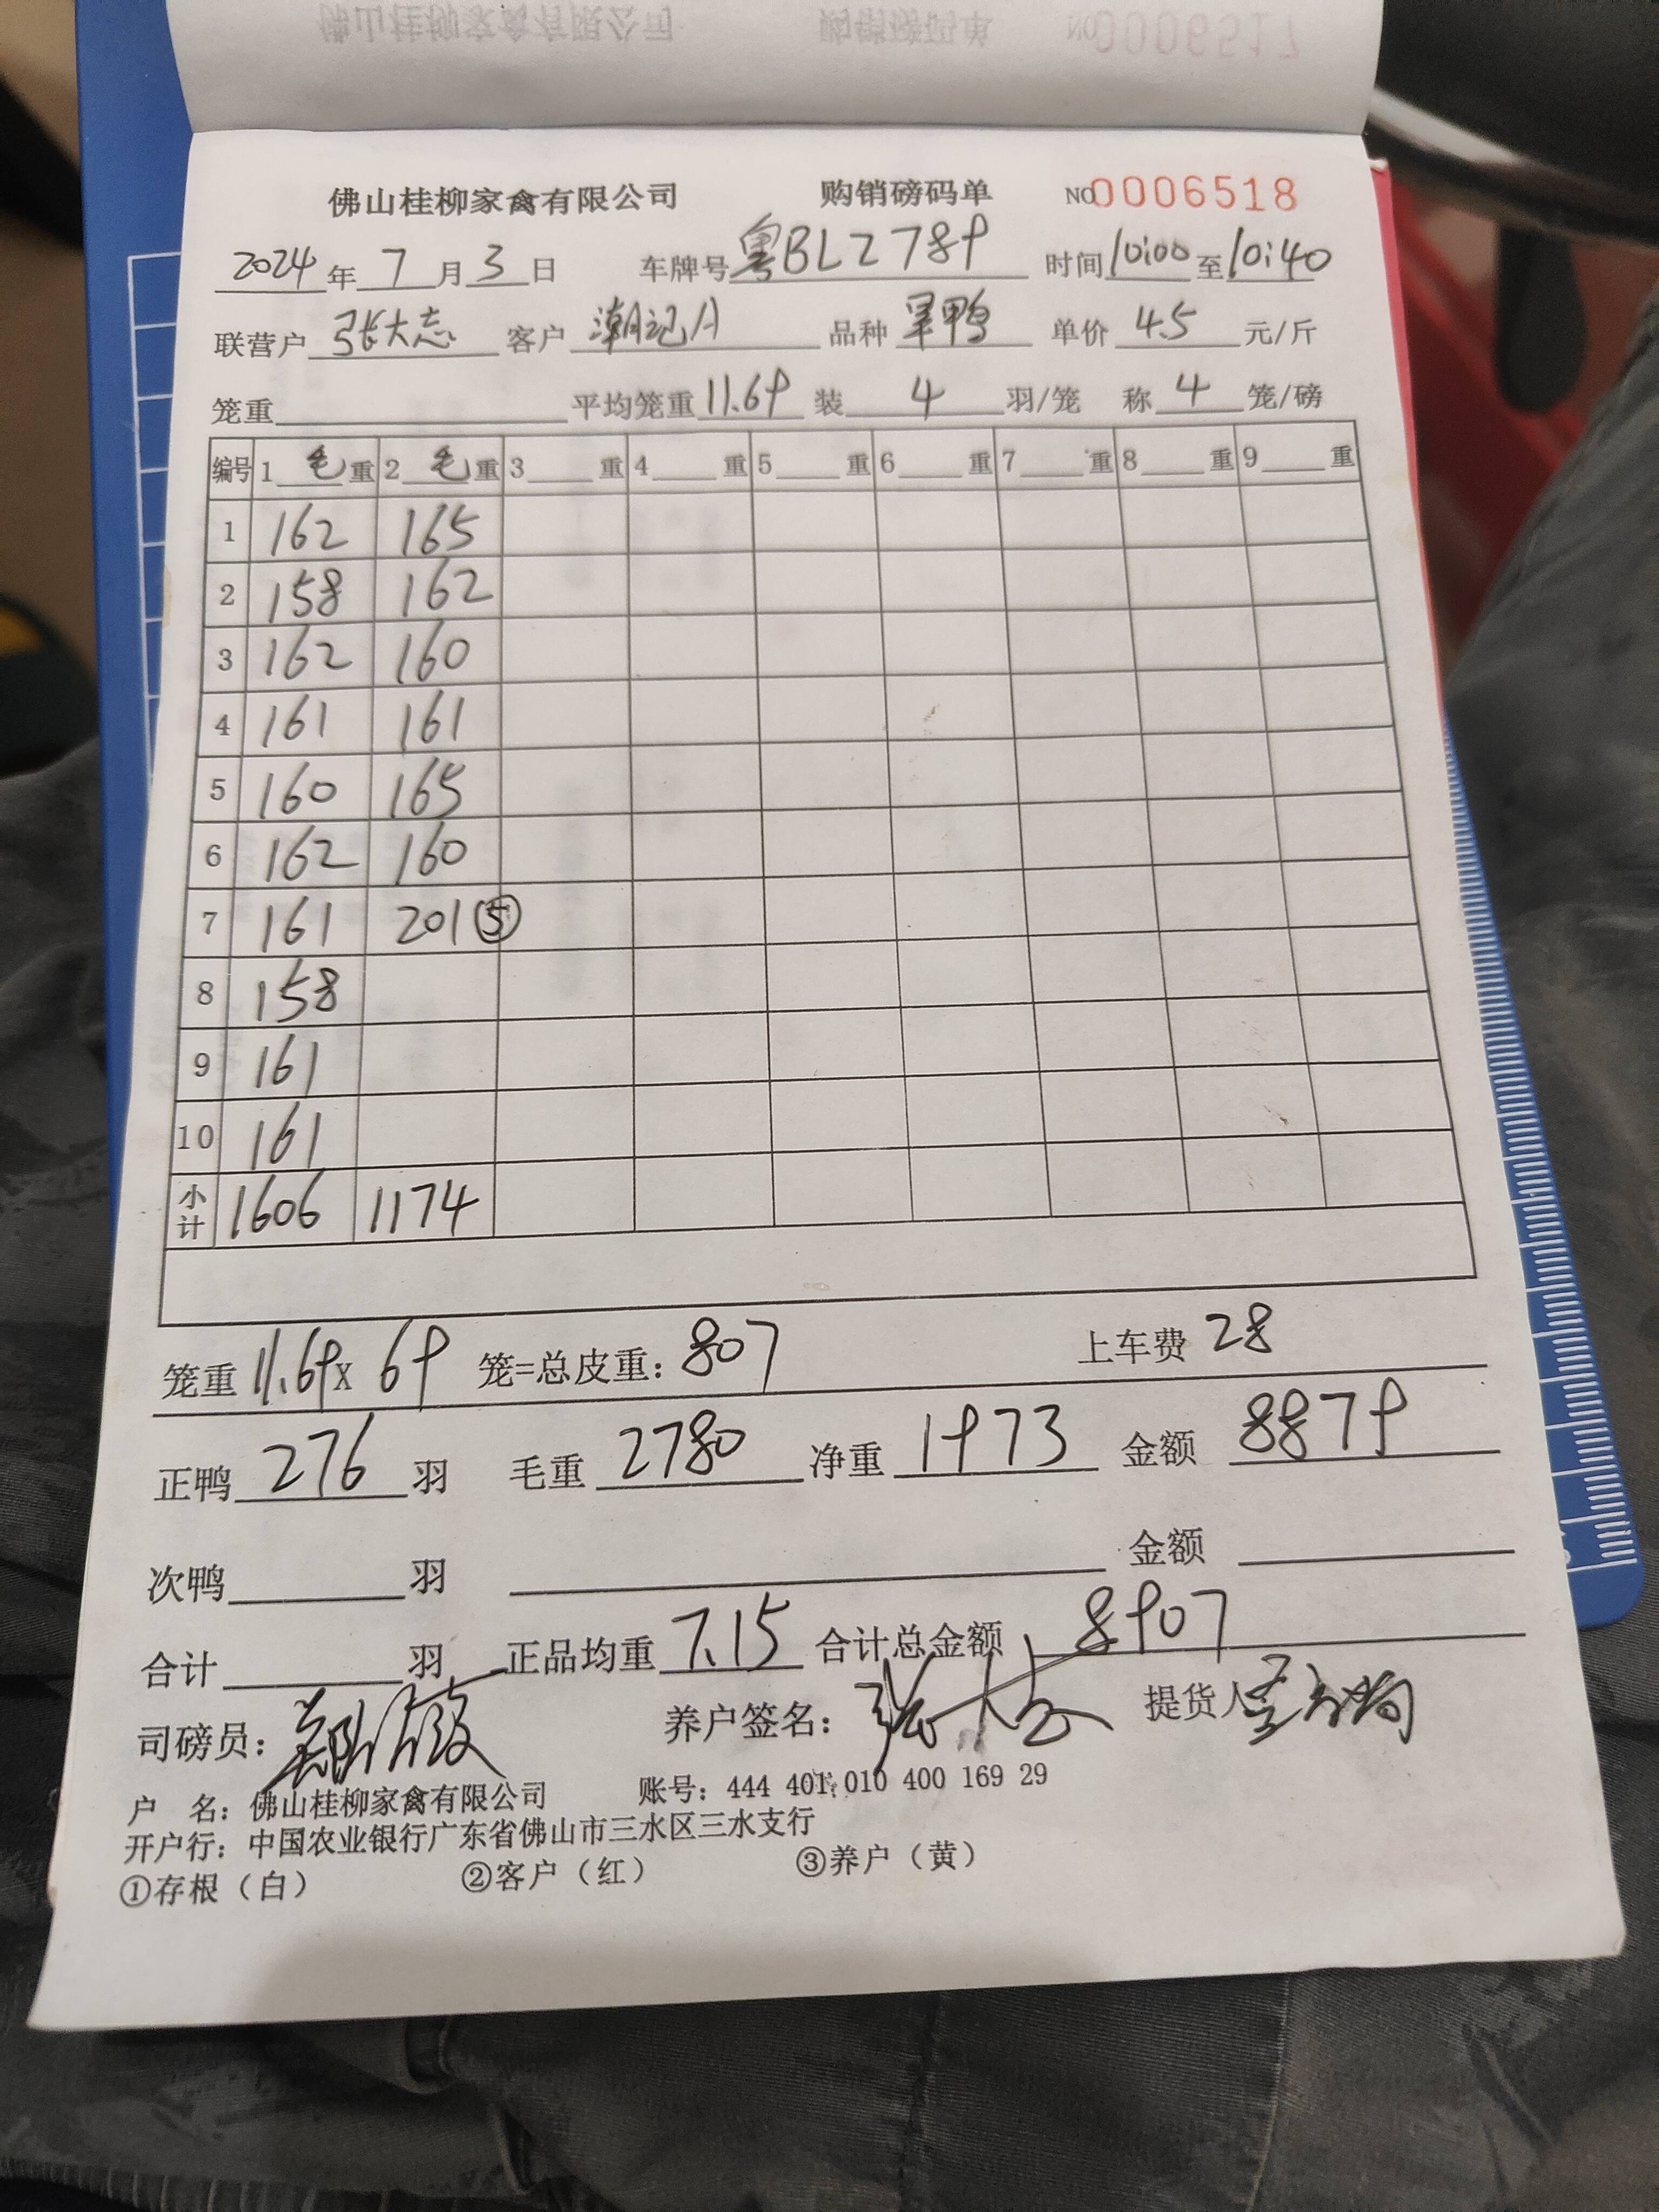 佛山桂柳家禽有限公司 购销磅码单 NO0006518
2024年7月3日 车牌号粤BLZ789 时间10:00至10:40
联营户张大志 客户潮记A 品种旱鸭 单价4.5元/斤
笼重 平均笼重11.69 装4羽/笼 称4笼/磅
编号 1毛重 2毛重 3重 4重 5重 6重 7重 8重 9重
1 162 165
2 158 162
3 162 160
4 161 161
5 160 165
6 162 160
7 161 201⑤
8 158
9 161
10 161
小计 1606 1174
笼重11.69X69笼=总皮重:807 上车费28
正鸭276羽 毛重2780 净重1973 金额8879
次鸭 羽 金额
合计 羽 正品均重7.15 合计总金额8907
司磅员: 养户签名: 张大志 提货人
户 名:佛山桂柳家禽有限公司 账号:444 401 010 400 169 29
开户行:中国农业银行广东省佛山市三水区三水支行
①存根(白) ②客户(红) ③养户(黄)